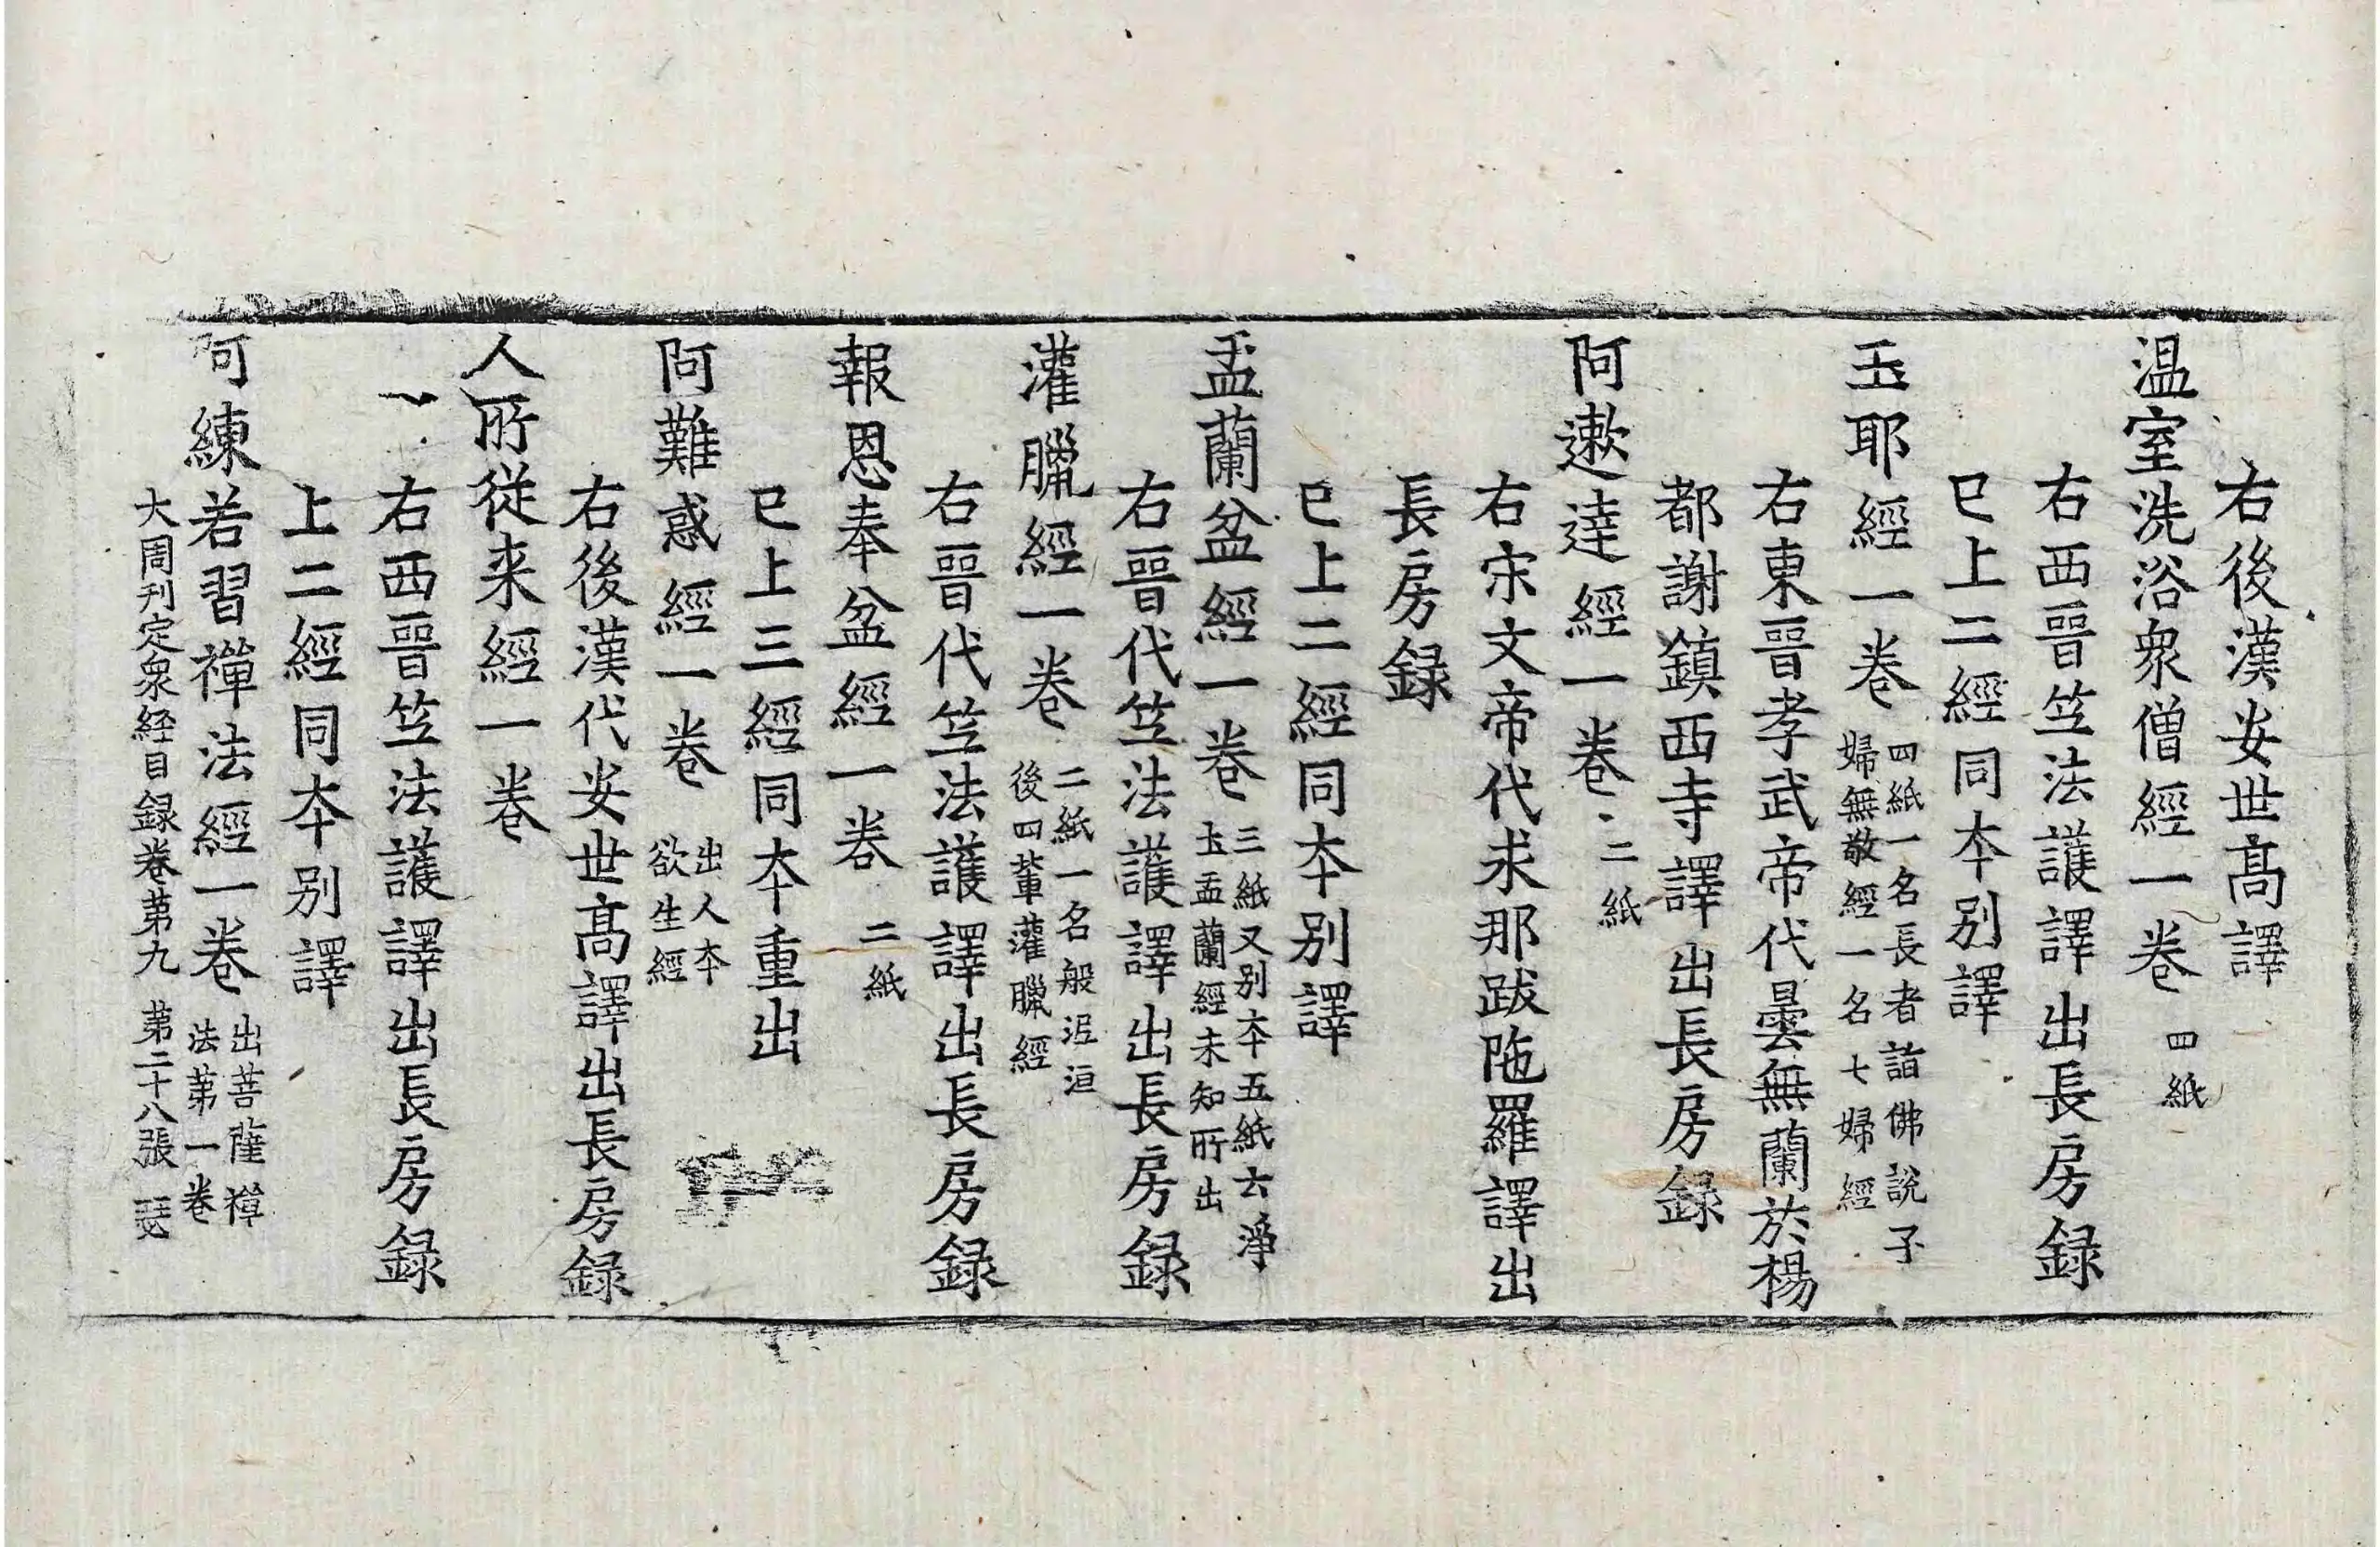 右後漢安世髙譯
温室洗浴衆僧經一卷 四紙
右西晉竺法護譯出長房録
已上二經同夲别譯
玉耶經一卷 四紙一名長者詣佛說子
婦無敬經一名七婦經
右東晉孝武帝代曇無蘭於楊
都謝鎮西寺譯出長房録
阿遬達經一卷 二紙
右宋文帝代求那跋陁羅譯出
長房録
已上二經同夲别譯
盂蘭盆經一卷 三紙又别夲五紙云淨
土盂蘭經未知所出
右晉代竺法護譯出長房録
灌臘經一卷 二紙一名般泥洹
後四輩灌臘經
右晉代竺法護譯出長房録
報恩奉盆經一卷 二紙
已上三經同夲重出
阿難惑經一卷 出人夲
欲生經
右後漢代安世髙譯出長房録
人所從来經一卷
右西晉竺法護譯出長房録
上二經同夲别譯
阿練若習禪法經一卷 出菩薩禪
法苐一卷
大周刊定衆経目録卷苐九 苐二十八張